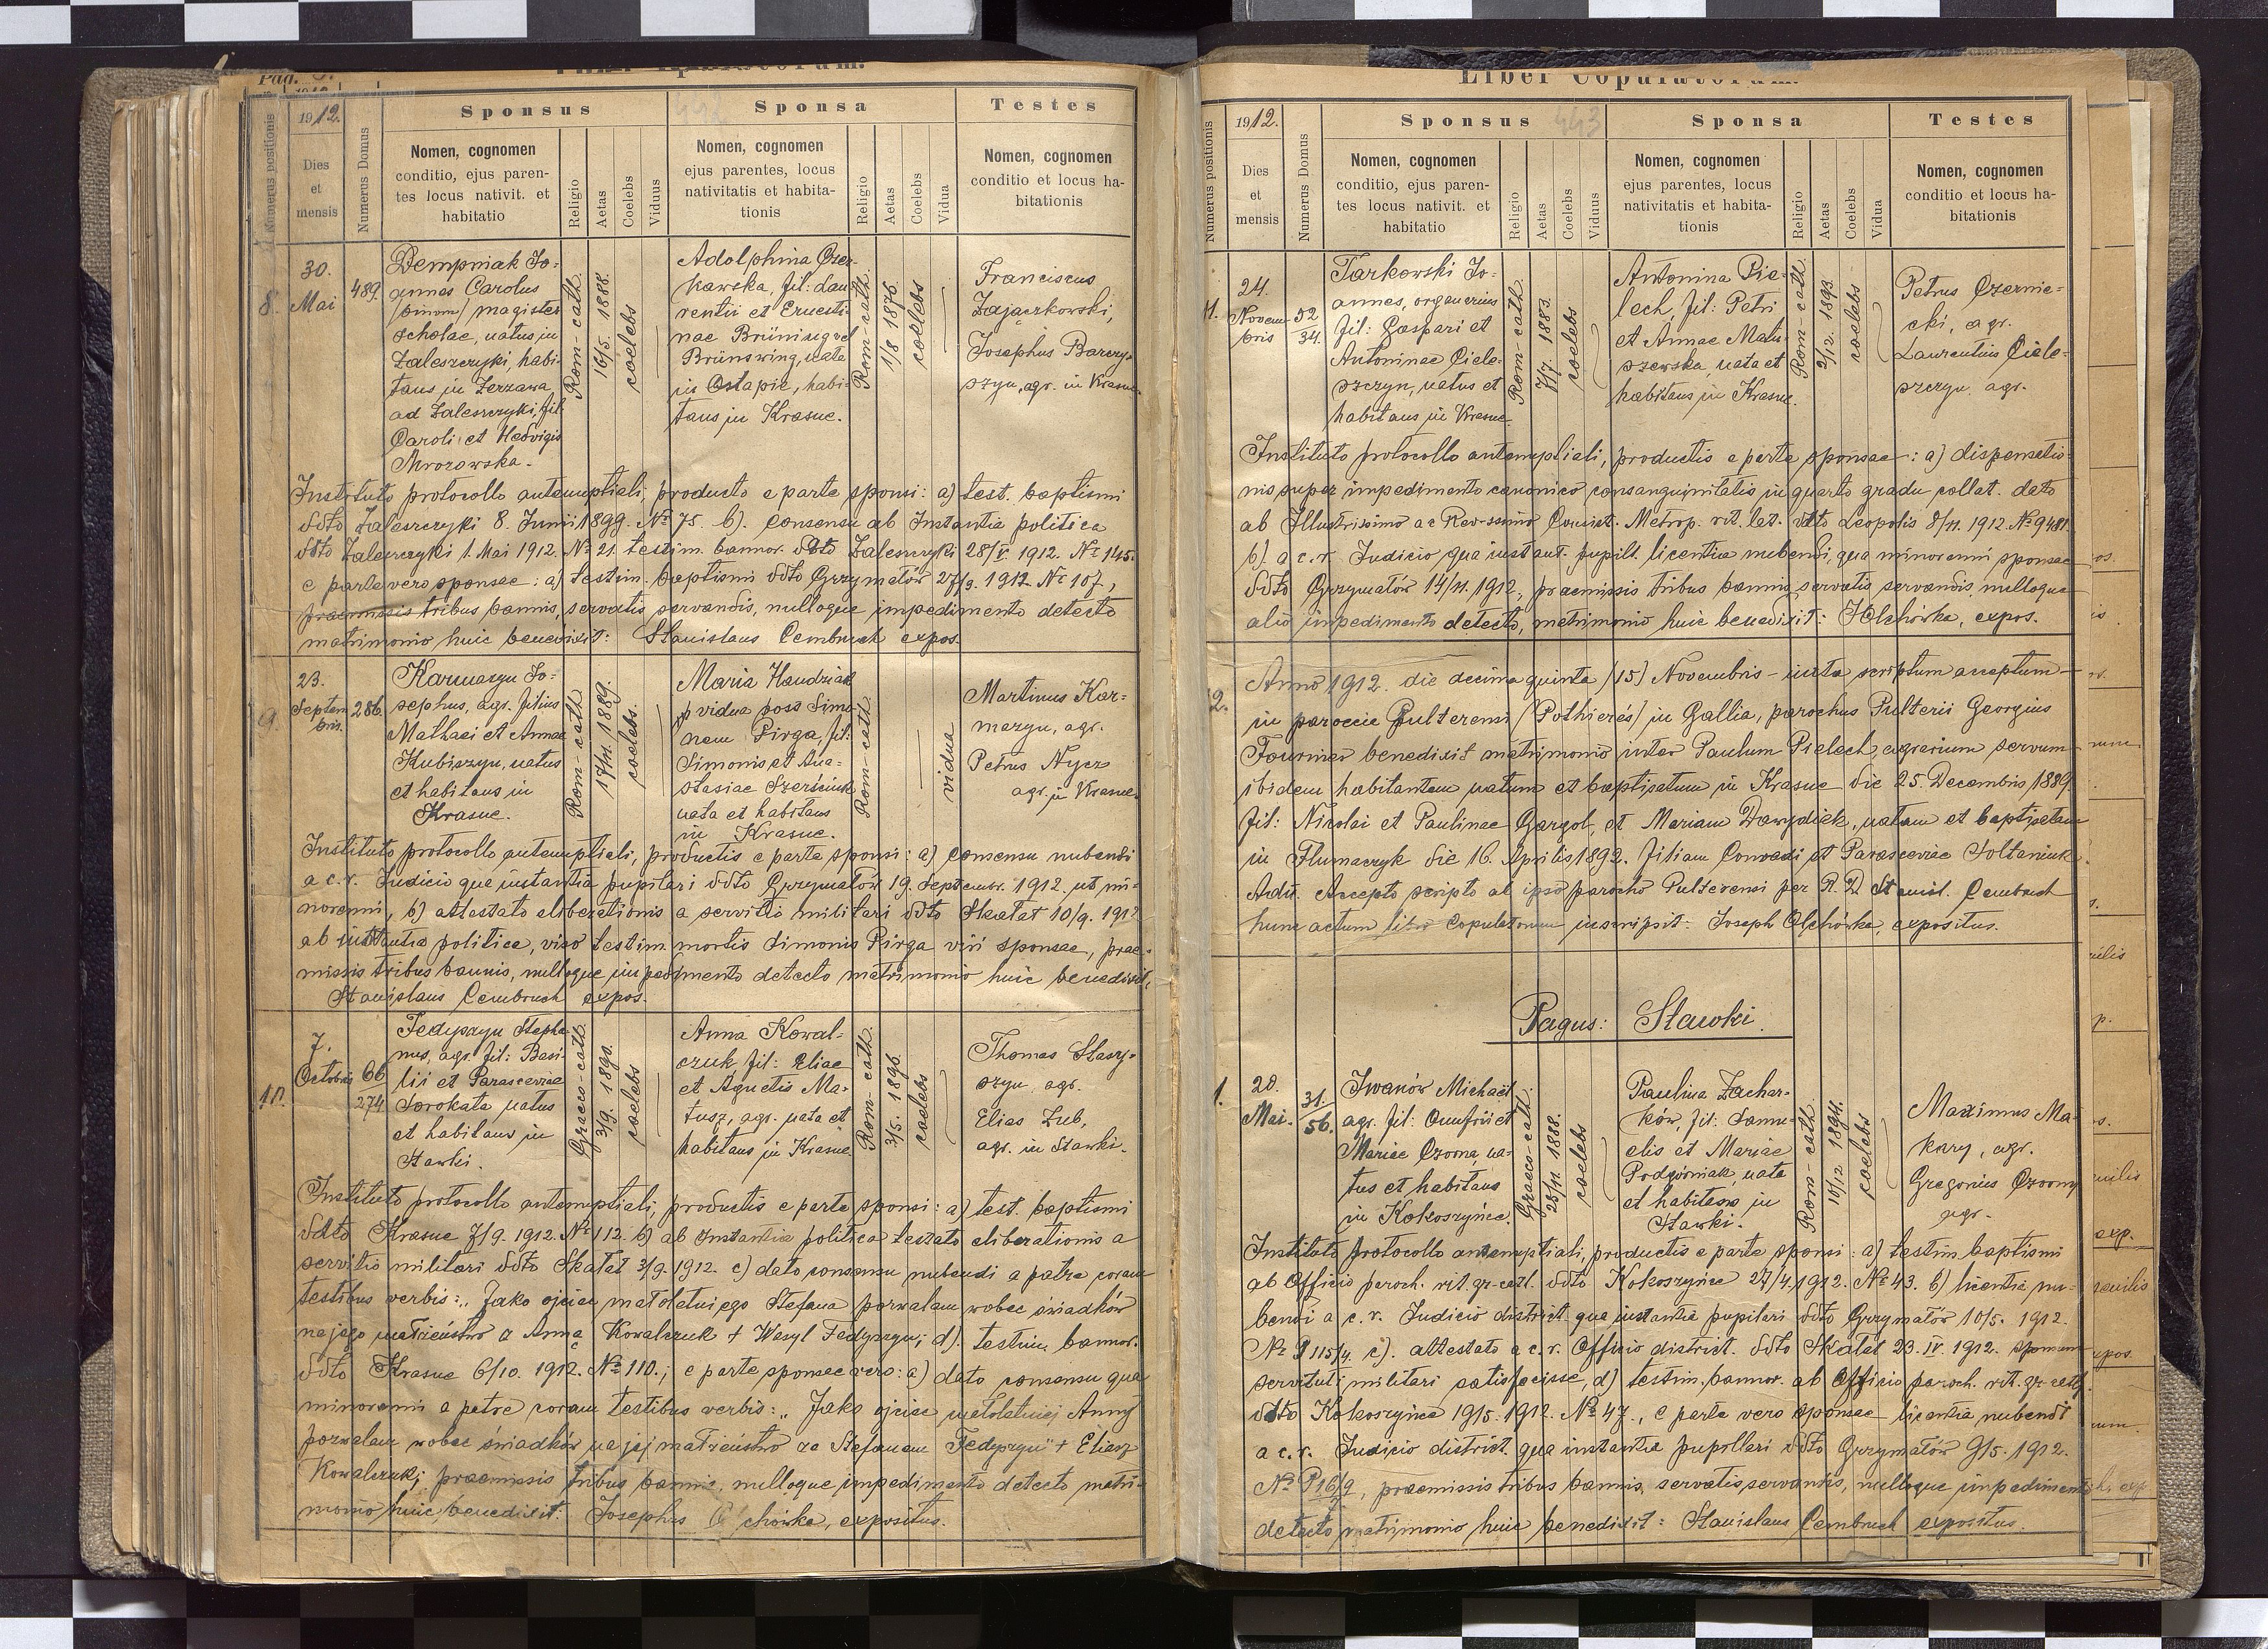 Pag.
1912.
Numerus positionis
Dies
et
mensis
Numerus Domus
Sponsus
Nomen, cognomen
conditio, ejus paren-
tes locus nativit. et
habitatio
Religio
Aetas
Coelebs
Viduus
Sponsa
Nomen, cognomen
ejus parentes, locus
nativitatis et habita-
tionis
Religio
Aetas
Coelebs
Vidua
Testes
Nomen, cognomen
conditio et locus ha-
bitationis
8.
30.
Mai
489.
Dempniak Jo-
annes Carolus
/binom/ magister
scholae, natus in
Zaleszczyki, habi-
tans in Zezawa
ad Zaleszczyki, fil.
Caroli et Hedvigis
Mrozowska.
Rom-cath.
16/5. 1888.
coelebs
Adolphina Czer-
kawska, fil: Lau-
rentii et Ernesti-
nae Brüning vel
Brünswing, nata
in Ostapie, habi-
tans in Krasne.
Rom-cath.
1/8 1876.
coelebs
Franciscus
Zajączkowski,
Josephus Barczy-
szyn, agr. in Krasne.
Instituto protocollo antenuptiali, producto e parte sponsi: a) test. baptismi
ddto Zaleszczyki 8. Junii 1899. № 75. b). consensu ab Instantia politica
ddto Zaleszczyki 1. Mai 1912. № 21. testim. bannor. ddto Zaleszczyki 28/V. 1912. № 145.
e parte vero sponsae: a) testim. baptismi ddto Grzymałów 27/3. 1912. № 107,
praemissis tribus bannis, servatis servandis, nulloque impedimento detecto
matrimonio huic benedixit: Stanislaus Cembruch expos.
9.
23.
Septem-
bris.
286.
Karmazyn Jo-
sephus, agr. filius
Mathaei et Annae
Kubiszyn, natus
et habitans in
Krasne.
Rom-cath
17/11. 1889.
coelebs.
Maria Handziak
vidua post Simo-
nem Pirga, fil:
Simonis et Ana-
stasiae Szerściuk
nata et habitans
in Krasne.
Rom-cath.
vidua
Martinus Kar-
mazyn, agr.
Petrus Nycz
agr. in Krasne.
Instituto protocollo antenuptiali, productis e parte sponsi: a) consensu nubendi
a c.r. Judicio qua instantia pupilari ddto Grzymałów 19. Septembr. 1912. ut mi-
norenni, b) attestato eliberationis a servitio militari ddto Skałat 10/9. 1912
ab instantia politica, viso testim. mortis Simonis Pirga viri sponsae, prae-
missis tribus bannis, nulloque impedimento detecto matrimonio huic benedixit,
Stanislaus Cembruch expos.
10.
7.
Octobris
66
274
Fedyszyn Stepha-
nus, agr. fil: Basi-
lii et Parasceviae
Sorokata natus
et habitans in
Stawki.
Graeco-cath.
3/9. 1890.
coelebs
Anna Kowal-
czuk, fil: Eliae
et Agnetis Ma-
tusz, agr. nata et
habitans in Krasne
Rom-cath.
3/5. 1896.
coelebs
Thomas Staszy-
szyn, agr.
Elias Zub,
agr. in Stawki.
Instituto protocollo antenuptiali, productis e parte sponsi: a) test. baptismi
ddto Krasne 7/9. 1912. № 112. b) ab Instantia politica testato eliberationis a
servitio militari ddto Skałat 3/9. 1912. c) dato consensu nubendi a patre coram
testibus verbis: „Jako ojciec małoletniego Stefana pozwalam wobec świadków
na jego małżeństwo z Anną Kowalczuk + Wasyl Fedyszyn; d). testim. bannor.
ddto Krasne 6/10. 1912. № 110.; e parte sponsae vero: a) dato consensu qua
minorennis a patre coram testibus verbis: „Jako ojciec małoletniej Anny
pozwalam wobec świadków na jej małżeństwo za Stefanem Fedyszyn" + Eliasz
Kowalczuk; praemissis tribus bannis, nulloque impedimento detecto matri-
monio huic benedixit: Josephus Olchówka, expositus.
Liber Copulatorum.
Numerus positionis
1912.
Dies
et
mensis
Numerus Domus
Sponsus
443
Nomen, cognomen
conditio, ejus paren-
tes locus nativit. et
habitatio
Religio
Aetas
Coelebs
Viduus
Sponsa
Nomen, cognomen
ejus parentes, locus
nativitatis et habita-
tionis
Religio
Aetas
Coelebs
Vidua
Testes
Nomen, cognomen
conditio et locus ha-
bitationis
11.
24.
Novem-
bris
52
34.
Tarkowski Jo-
annes, organarius
fil: Gaspari et
Antoninae Ciele-
szczyn, natus et
habitans in Krasne
Rom-cath.
7/7. 1883.
coelebs
Antonina Pie-
lech, fil: Petri
et Annae Matu-
szewska, nata et
habitans in Krasne.
Rom cath.
2/12. 1893.
coelebs
Petrus Czernie-
cki, agr.
Laurentius Ciele-
szczyn, agr.
Instituto protocollo antenuptiali, productis e parte sponsae: a) dispensatio-
nis super impedimento canonico consanguinitatis in quarto gradu collat. dato
ab Illustrissimo ac Rev-ssimo Consist. Metrop. rit. lat. ddto Leopolis 8/11. 1912. № 9481.
b). a c.r. Judicio, qua instant. pupill. licentia nubendi, qua minorenni sponsae
ddto Grzymałów 14/11. 1912, praemissis tribus bannis, servatis servandis, nulloque
alio impedimento detecto, matrimonio huic benedixit: J. Olchówka, expos.
2.
Anno 1912. die decima quinta /15/ Novembris – iuxta scriptum acceptum –
in paroecia Pulterensi /Pothières/ in Gallia, parochus Pulterii Georgius
Fournier benedixit matrimonio inter Paulum Pielech agrarium servum
ibidem habitantem natum et baptisatum in Krasne die 25. Decembris 1889.
fil: Nicolai et Paulinae Gargol, et Mariam Dawydiak, natam et baptisatam
in Tłumaczyk die 16. Aprilis 1892. filiam Conradi et Parasceviae Sołtaniuk.
Adn. Accepto scripto ab ipso parocho Pulterensi per R. D. Stanisl. Cembruch
hunc actum libro Copulatorum inscripsit: Joseph Olchówka, expositus.
Pagus: Stawki.
1.
20.
Mai.
31.
56.
Iwanów Michaël
agr. fil: Onufrii et
Mariae Czorna, na-
tus et habitans
in Kokoszyńce.
Graeco-cath.
23/11. 1888.
coelebs
Paulina Zachar-
ków, fil: Samu-
elis et Mariae
Podgórniak, nata
et habitans in
Stawki.
Rom-cath.
10/12. 1894.
coelebs
Maximus Ma-
kary, agr.
Gregorius Czorny
agr.
Instituto protocollo antenuptiali, productis e parte sponsi: a) testim. baptismi
ab Officio paroch. rit. gr-cath. ddto Kokoszyńce 27/4. 1912. № 43. b) licentia nu-
bendi a c. r. Judicio district. qua instantia pupilari ddto Grzymałów 10/5. 1912.
№ P 115/4. c). attestato a c. r. Officio district. ddto Skałat 23. IV. 1912. sponsum
servituti militari satisfecisse, d) testim. bannor. ab Officio paroch. rit. gr-cath.
ddto Kokoszyńce 19/5. 1912. № 47., e parte vero sponsae licentia nubendi
a c. r. Judicio district. qua instantia pupillari ddto Grzymałów 9/5. 1912.
№ P 16/9, praemissis tribus bannis, servatis servandis, nulloque impedimento
detecto matrimonio huic benedixit: Stanislaus Cembruch expositus